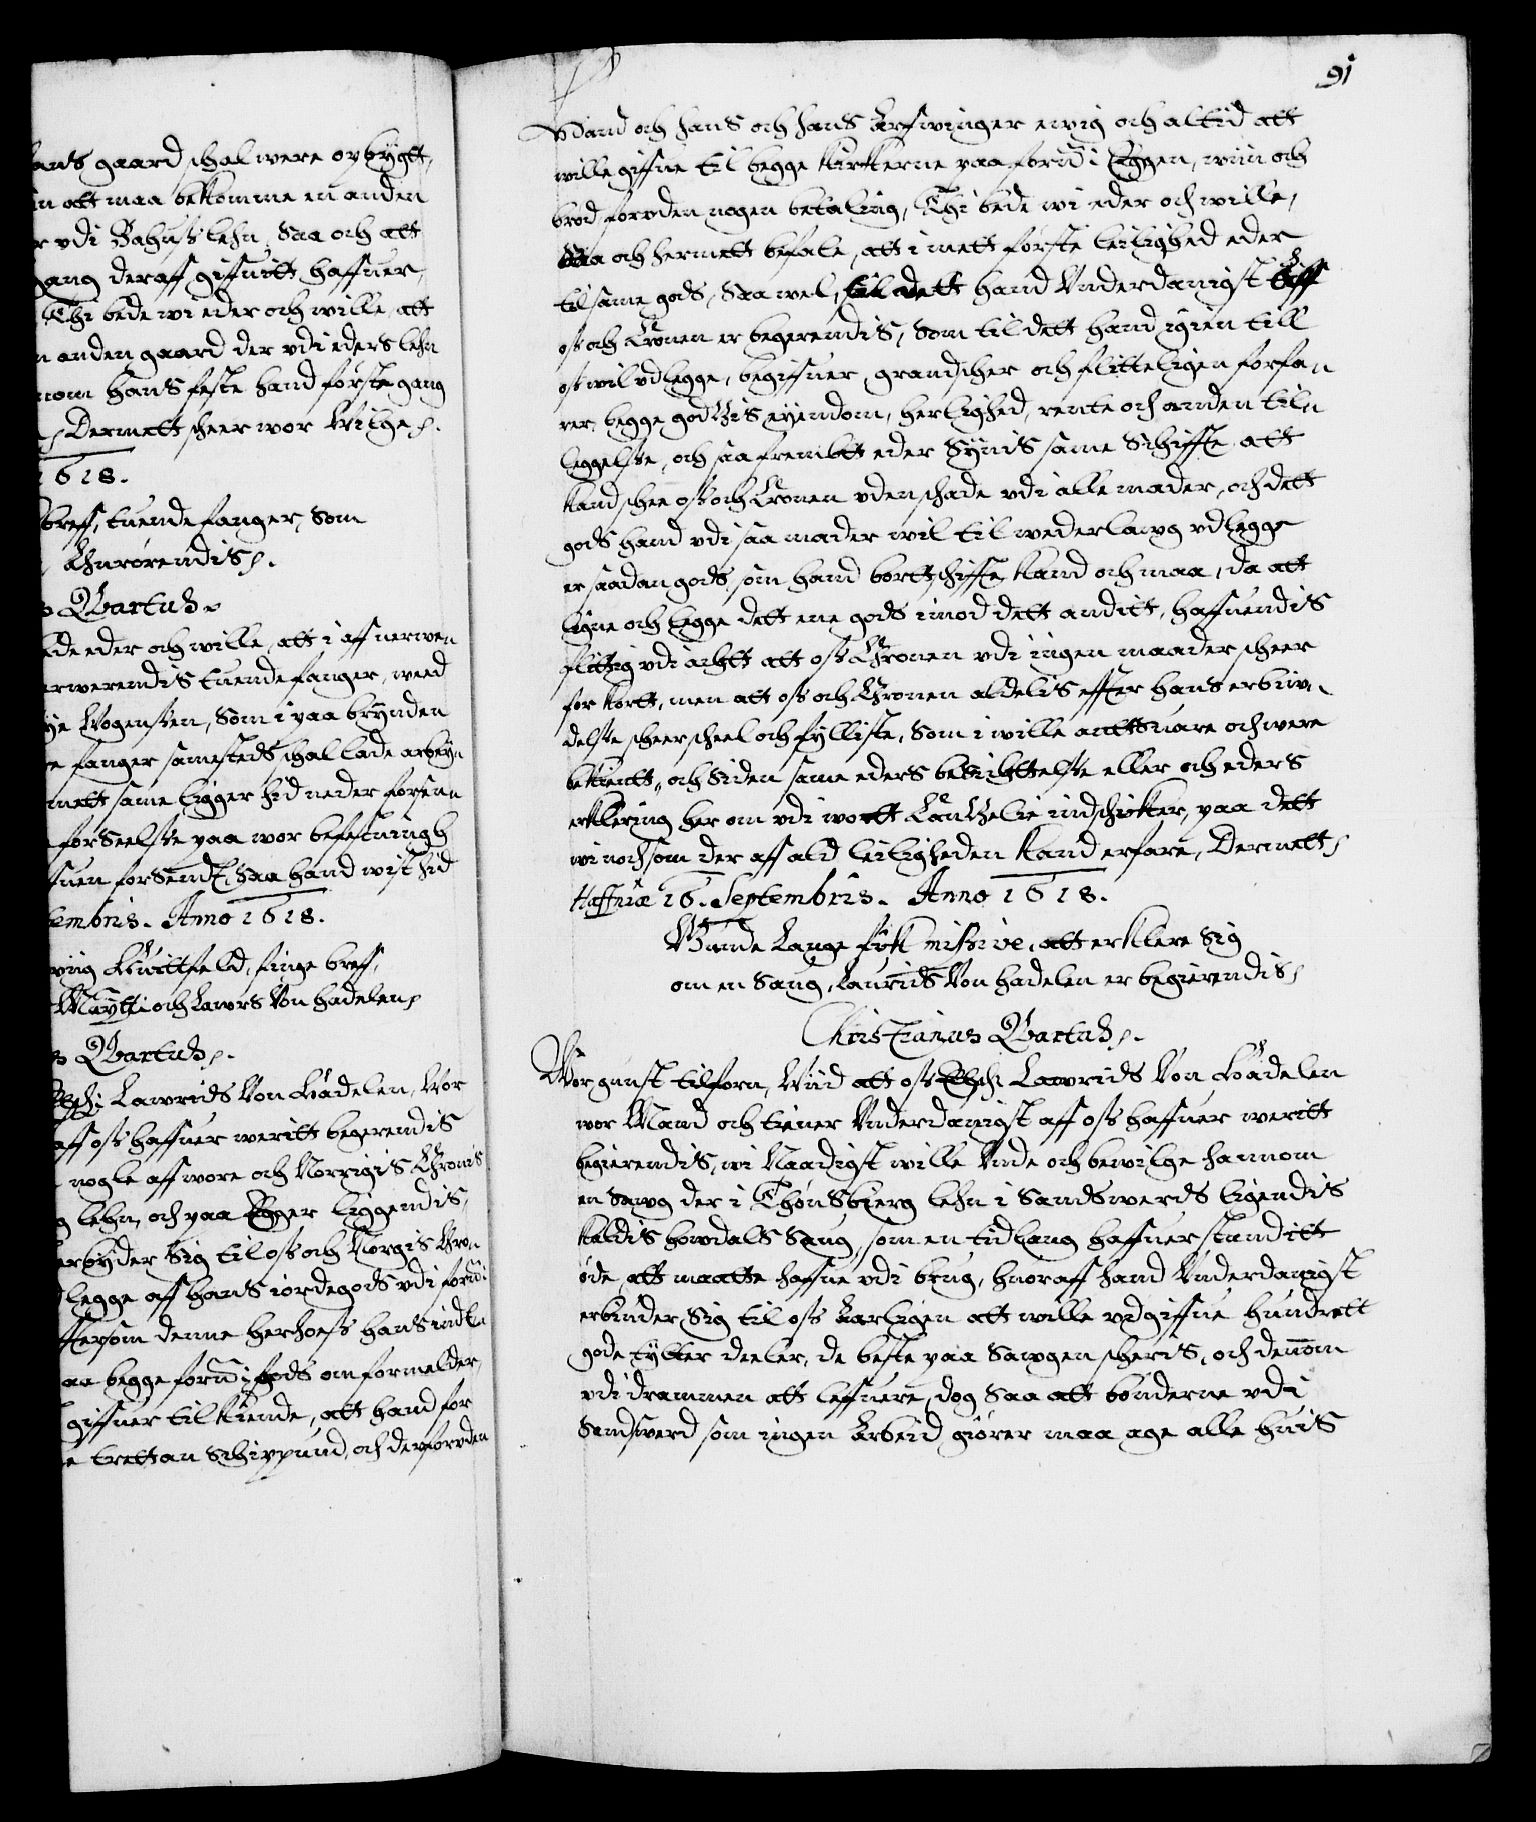 ans gaard schal were opbÿgtt,
in att maa bekomme en anden
r vdi Bahus lehn, Saa och att
gang deraff giffuitt haffuer,
Thi bede wi eder och wille, att
n anden gaard der vdi eders lehn
nom hans feste hand förste gang
Dermett scheer wor Wilge.
1618.
breff, tuende fanger, Som
Anrörendis.
Qvartus.
ede eder och wille, att i aff nerwen
erwerendis tuende fanger, weed
ÿe Mogensen, Som i paa brÿnden
e fanger samesteds schal lade arbeÿ
mett same ligger hid neder forsen
forseelse paa wor befestningh
ffuen forsendt, Saa hand wist hid
tembris. Anno 1618.
ving Huittfeld, finge breff,
Maÿtt: och Lawrs Von Hadelen
Qvartus.
Elsch: Lawrids Von Hadelen, Wor
aff oss haffuer weritt begerendis
nogle aff wore och Norrigis Chronis
g lehn, och paa Egger liggendis,
erbÿder Sig til oss och Norgis Chron
legge aff hans iordegods vdi forn:
ttersom denne herhoess hans indl
aa begge forn: gods omformelder,
giffuer tilkiende, att hand for
e trettan Schippund, och der foruden
91
Hand och hans och hans Arffuinger ewig och altid att
wille giffue til begge Kirkerne paa forn: Eggen, wiin och
bröd foruden nogen betaling, Thi bede wi eder och wille,
Saa och hermett befale, att i mett förste leilighed eder
til same gods, Saa wel, til dett hand Vnderdanigst aff
oss och Cronen er begerendis, Som til dett hand igien till
oss wil vdlegge, begiffuer, grandscher och flitteligen forfa,
rer, begge godtzis eÿendom, herlighed, rente och anden til,
leggelse, och saa fremtt eder Sÿnis same Schiffte att
kand schee oss och Cronen vden schade vdi alle mader, och dett
gods hand vdi saa mader wil til wederlawg vdlegge
er saadan gods som hand borttschiffte kand och maa, da att
ligne och legge dett ene gods imod dett anditt, haffuendis
flittig vdi achtt att oss Chronen vdi ingen maader scheer
for kortt, men att oss och Chronen aldelis effter hans erbiu,
delse scheer scheel och fÿlliste, Som i wille anttsuare och were
bekientt, och Siden same eders besichttelse eller och eders
erklering her om vdi wortt Cantzelie indschicker, paa dett
wi noch som der aff ald leiligheden kand erfare, Dermett
Haffniæ 16. Septembris. Anno 1618.
Gunde Lange fik missive, att erklere Sig
om en Saug, Laurids Von Hadelen er begierendis
Christianus Qvartus.
Wor gunst tilforn, Wiid att oss Elsch: Lawrids Von Hadelen
wor Mand och tiener Vnderdanigst aff oss haffuer weritt
begierendis, wi Naadigst wille Vnde och bewilge hannom
en Sawg der i Thönsberg lehn i Sandswerds ligendis
kaldis howdals Saug, som en tid lang haffuer standitt
öde, att maatte haffue vdi brug, huoraff hand Vnderdanigst
erbiuder Sig til oss Aarligen att wille vdgiffue hundrett
gode tÿlter deeler, de beste paa Sawgen scheris, och dennom
vdi drammen att leffuere, dog Saa att bönderne vdi
Sandswerd som ingen Arbeid giörer maa age alle huis